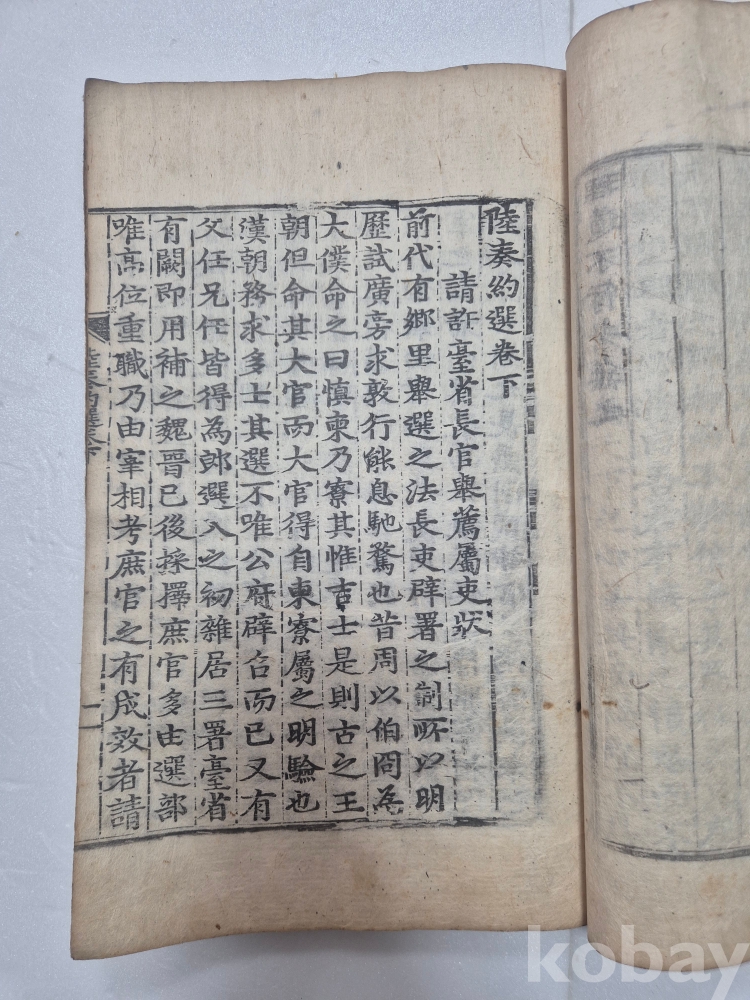 陸奏約選卷下
請許臺省長官舉薦屬吏狀
前代有鄉里舉選之法長吏辟署之制所以明
歷試廣旁求敦行能息馳騖也昔周以伯冏為
大僕命之曰慎柬乃寮其惟吉士是則古之王
朝但命其大官而大官得自柬寮屬之明驗也
漢朝務求多士其選不唯公府辟召而已又有
父任兄任皆得為郎選入之初雜居三署臺省
有闕即用補之魏晉已後採擇庶官多由選部
唯高位重職乃由宰相考庶官之有成效者請
陸奏約選卷下
一
kobay